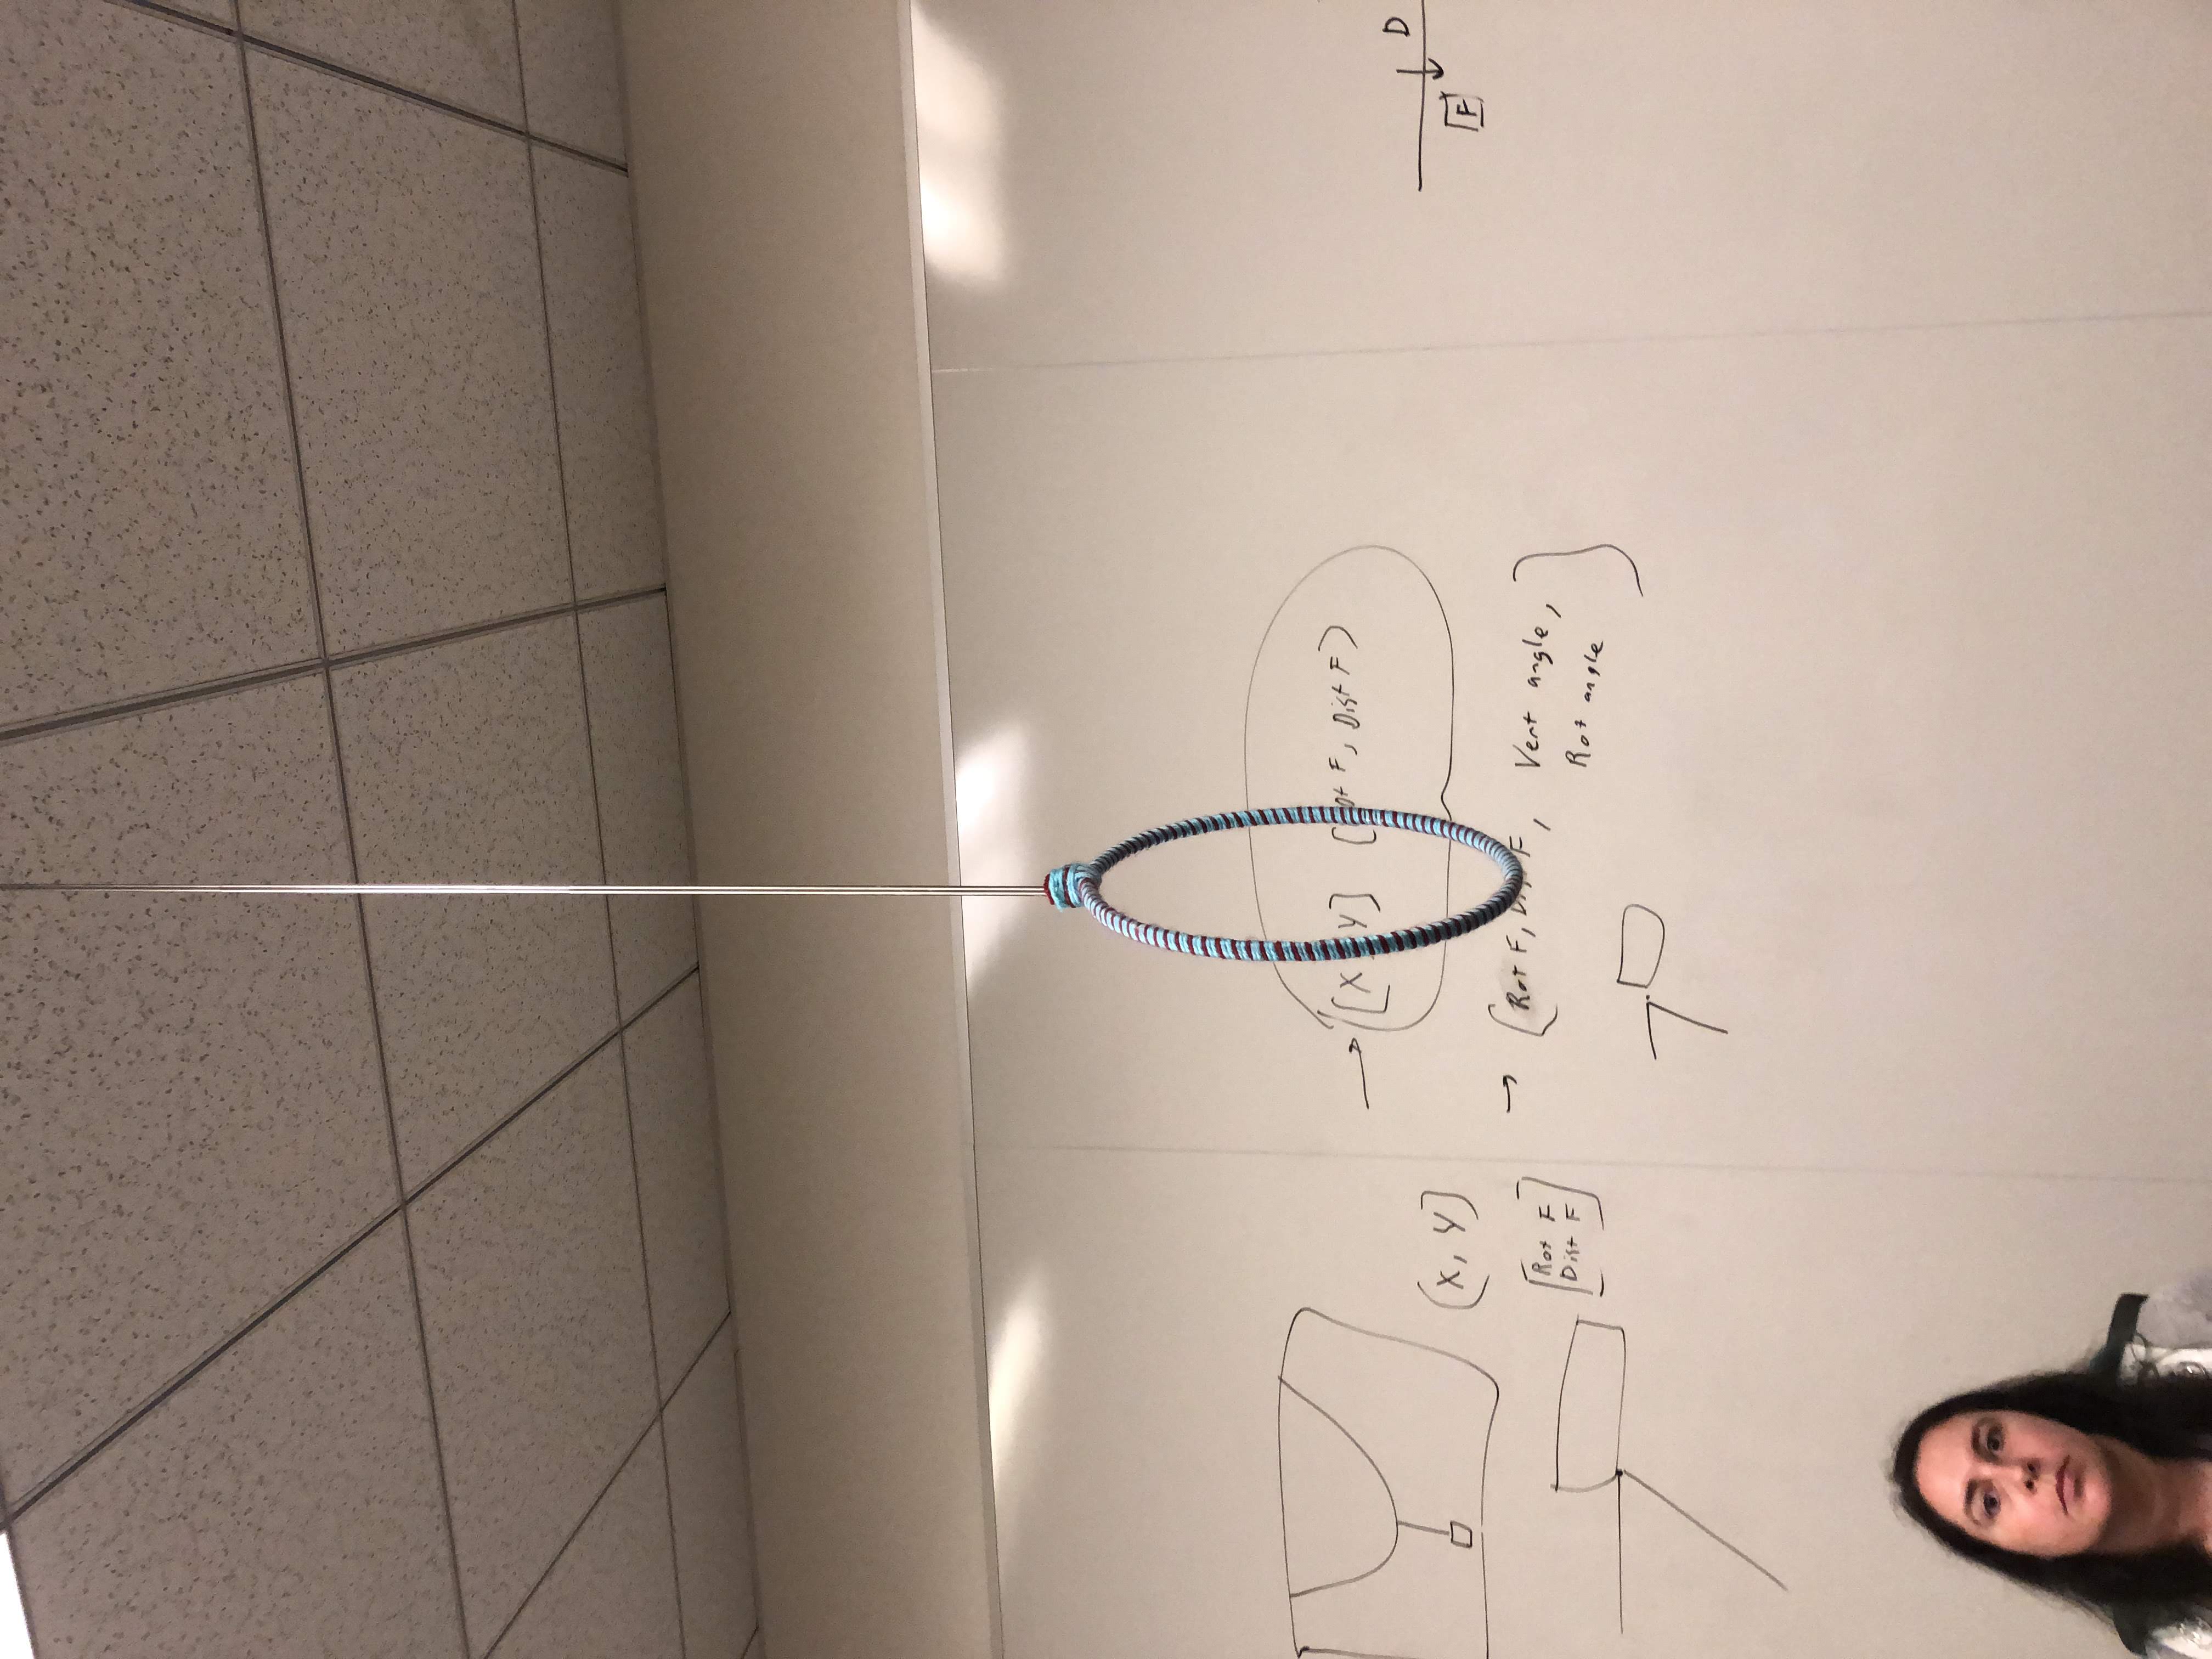 (X, Y]
[Rot F
Dist F]
→ [X Y] F, Dist F)
→ (Rot F, F, Vert angle,
Rot angle )
D
F